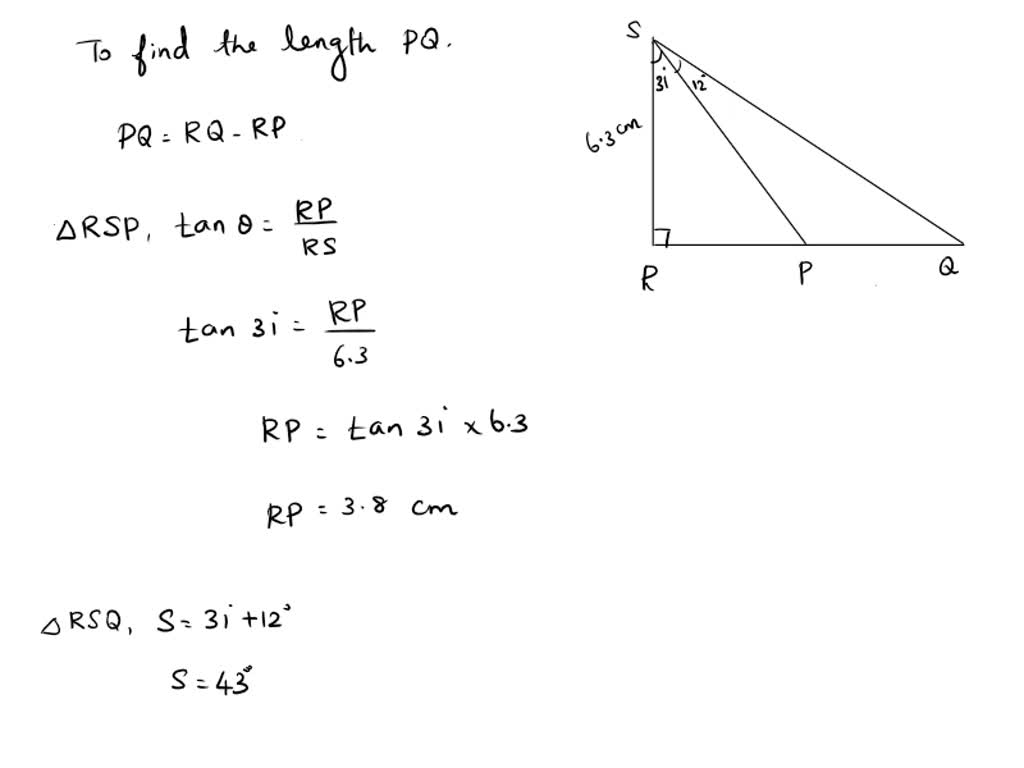 To find the length PQ.
PQ = RQ - RP
△RSP, tan θ = RP/RS
tan 31° = RP/6.3
RP = tan 31° × 6.3
RP = 3.8 cm
△RSQ, S = 31° + 12°
S = 43°
S
31° 12°
6.3 cm
R P Q